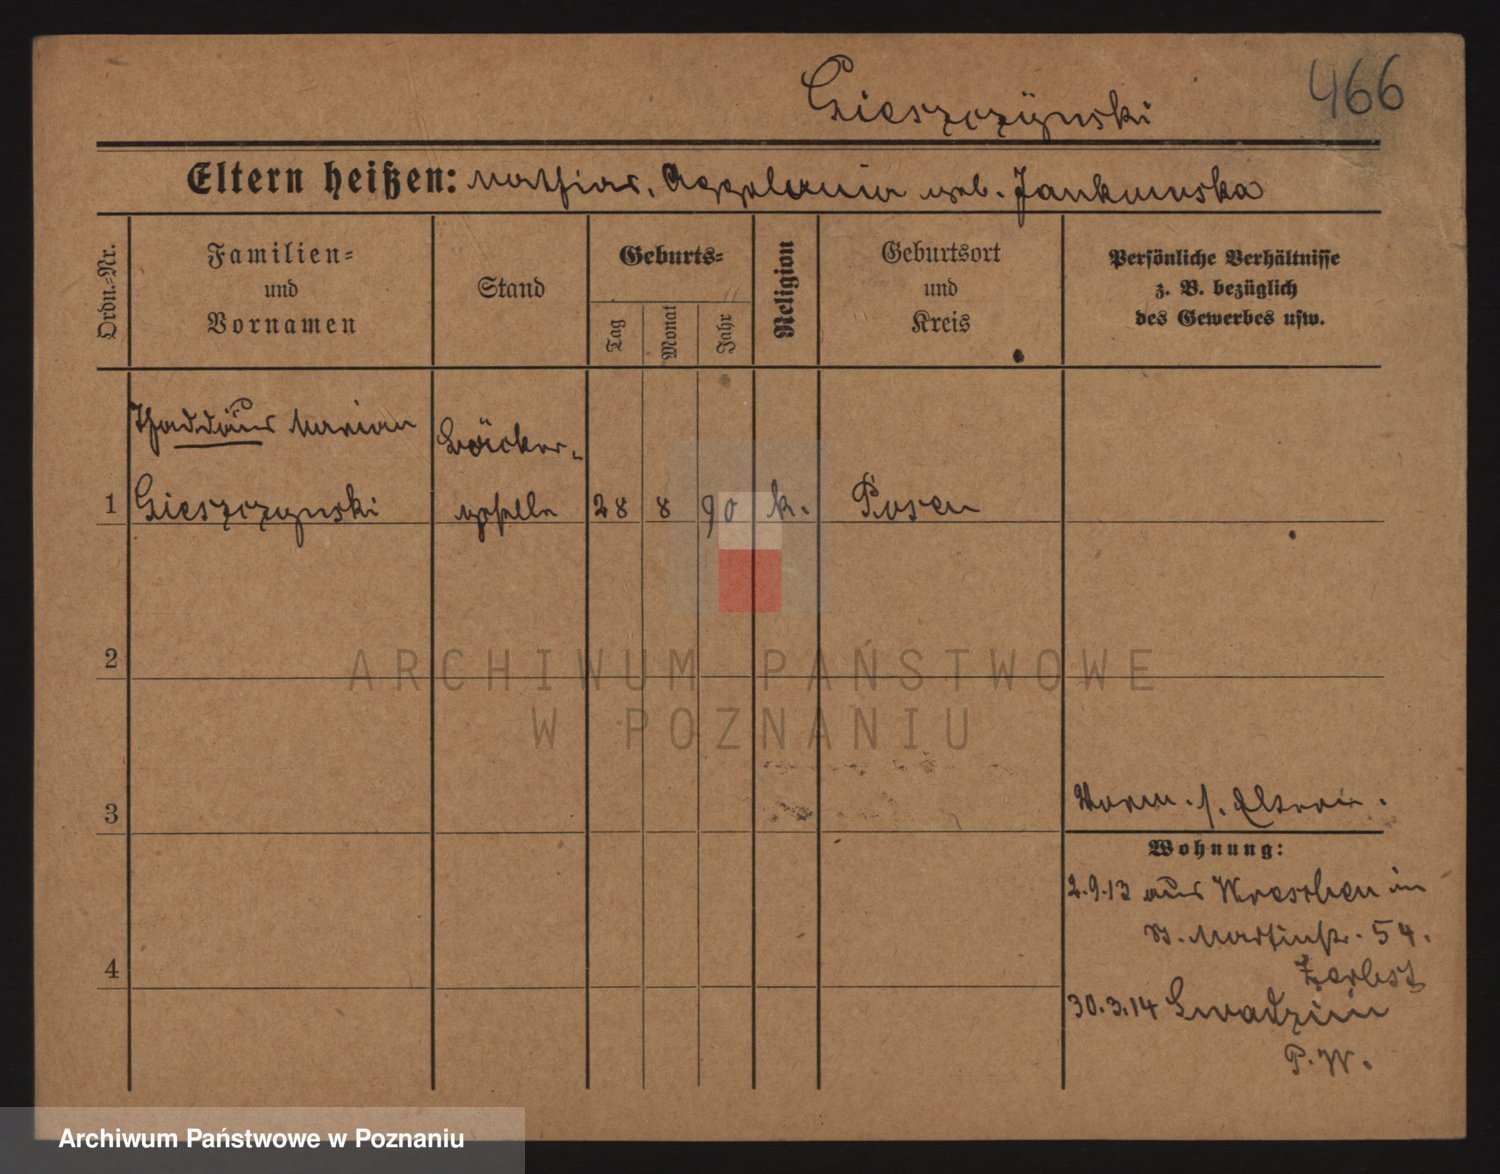 466
Cieszczynski
Eltern heißen: Mathias, Appolonia geb. Jankowska
Ordn.=Nr.
Familien=
und
Vornamen
Stand
Geburts=
Tag
Monat
Jahr
Religion
Geburtsort
und
Kreis
Persönliche Verhältnisse
z. B. bezüglich
des Gewerbes usw.
Thaddäus Marian
Bäcker-
1 Cieszczynski geselle 28 8 90 k. Posen
2
ARCHIWUM PAŃSTWOWE
W POZNANIU
3
Vorm. s. Eltern.
Wohnung:
2.9.13 aus Wreschen in
St. Martinstr. 54.
Zerbst
4
30.3.14
P. W.
Archiwum Państwowe w Poznaniu